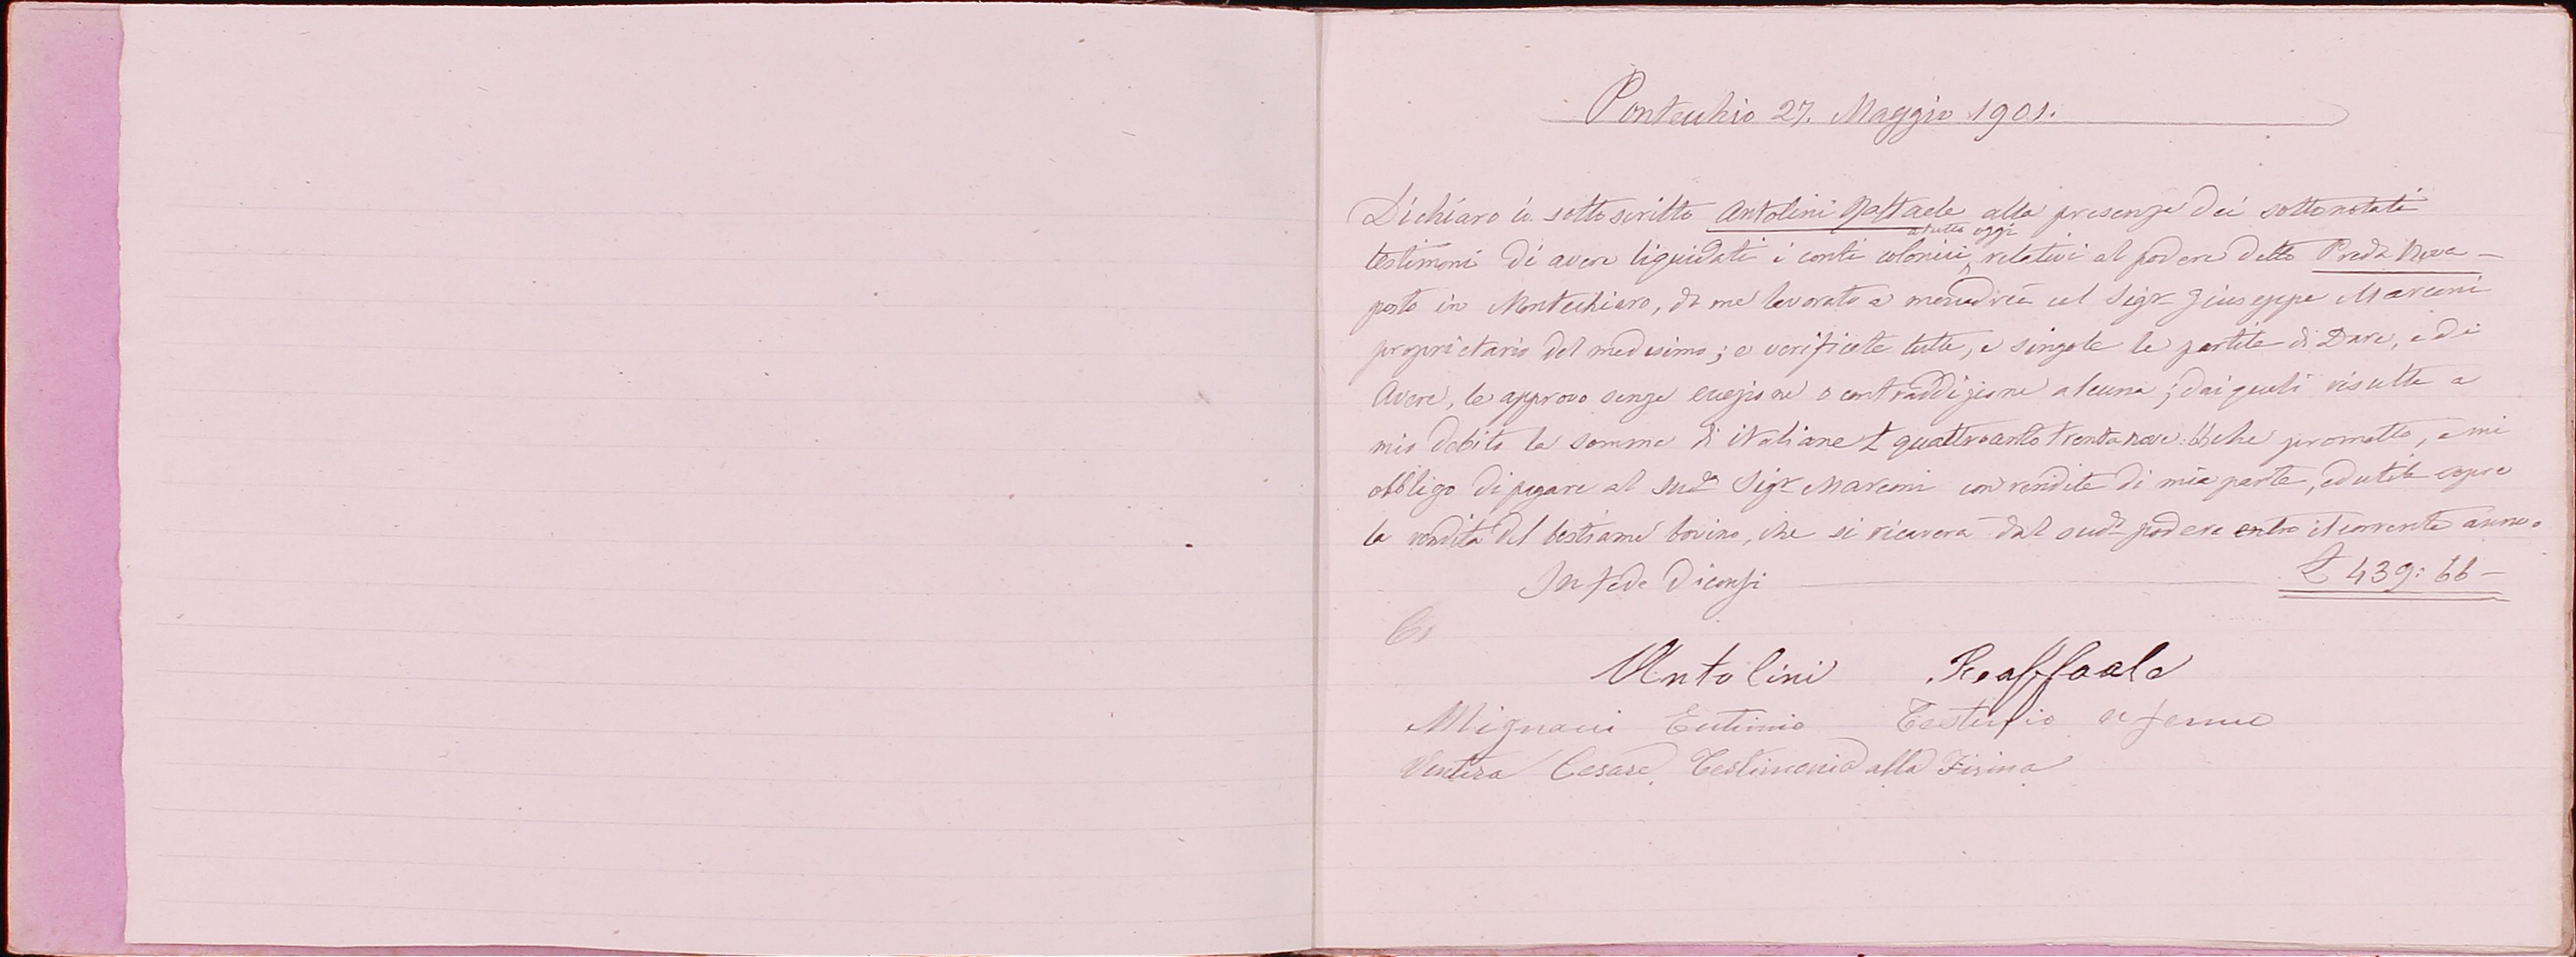 Pontecchio 27. Maggio 1901.
Dichiaro io sottoscritto Antolini Raffaele alla presenza dei sottonotati
a tutto oggi
testimoni di avere liquidati i conti colonici relativi al podere detto Preda Nova -
posto in Montechiaro, da me lavorato a mezzadria col Sigr Giuseppe Marconi
proprietario del medesimo; e verificate tutte, e singole le partite di Dare, e di
Avere, le approvo senza eccezione o contraddizione alcuna; dai quali risulta a
mio debito la somma di italiane £ quattrocento trentanove:66 che prometto, e mi
obbligo di pagare al sudo Sigr Marconi con rendite di mia parte, ed utile sopra
la vendita del bestiame bovino, che si ricaverà dal sudo podere entro il corrente anno.
In fede diconsi £ 439:66 -
Antolini Raffaele
Mignani Eutimio
Ventura Cesare Testimonio alla Firma